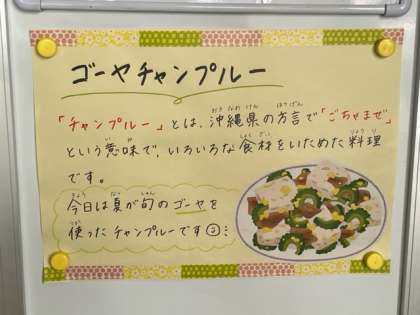 ゴーヤチャンプルー
「チャンプルー」とは、沖縄県の方言で「ごちゃまぜ」
という意味で、いろいろな食材をいためた料理
です。
今日は夏が旬のゴーヤを
使ったチャンプルーです